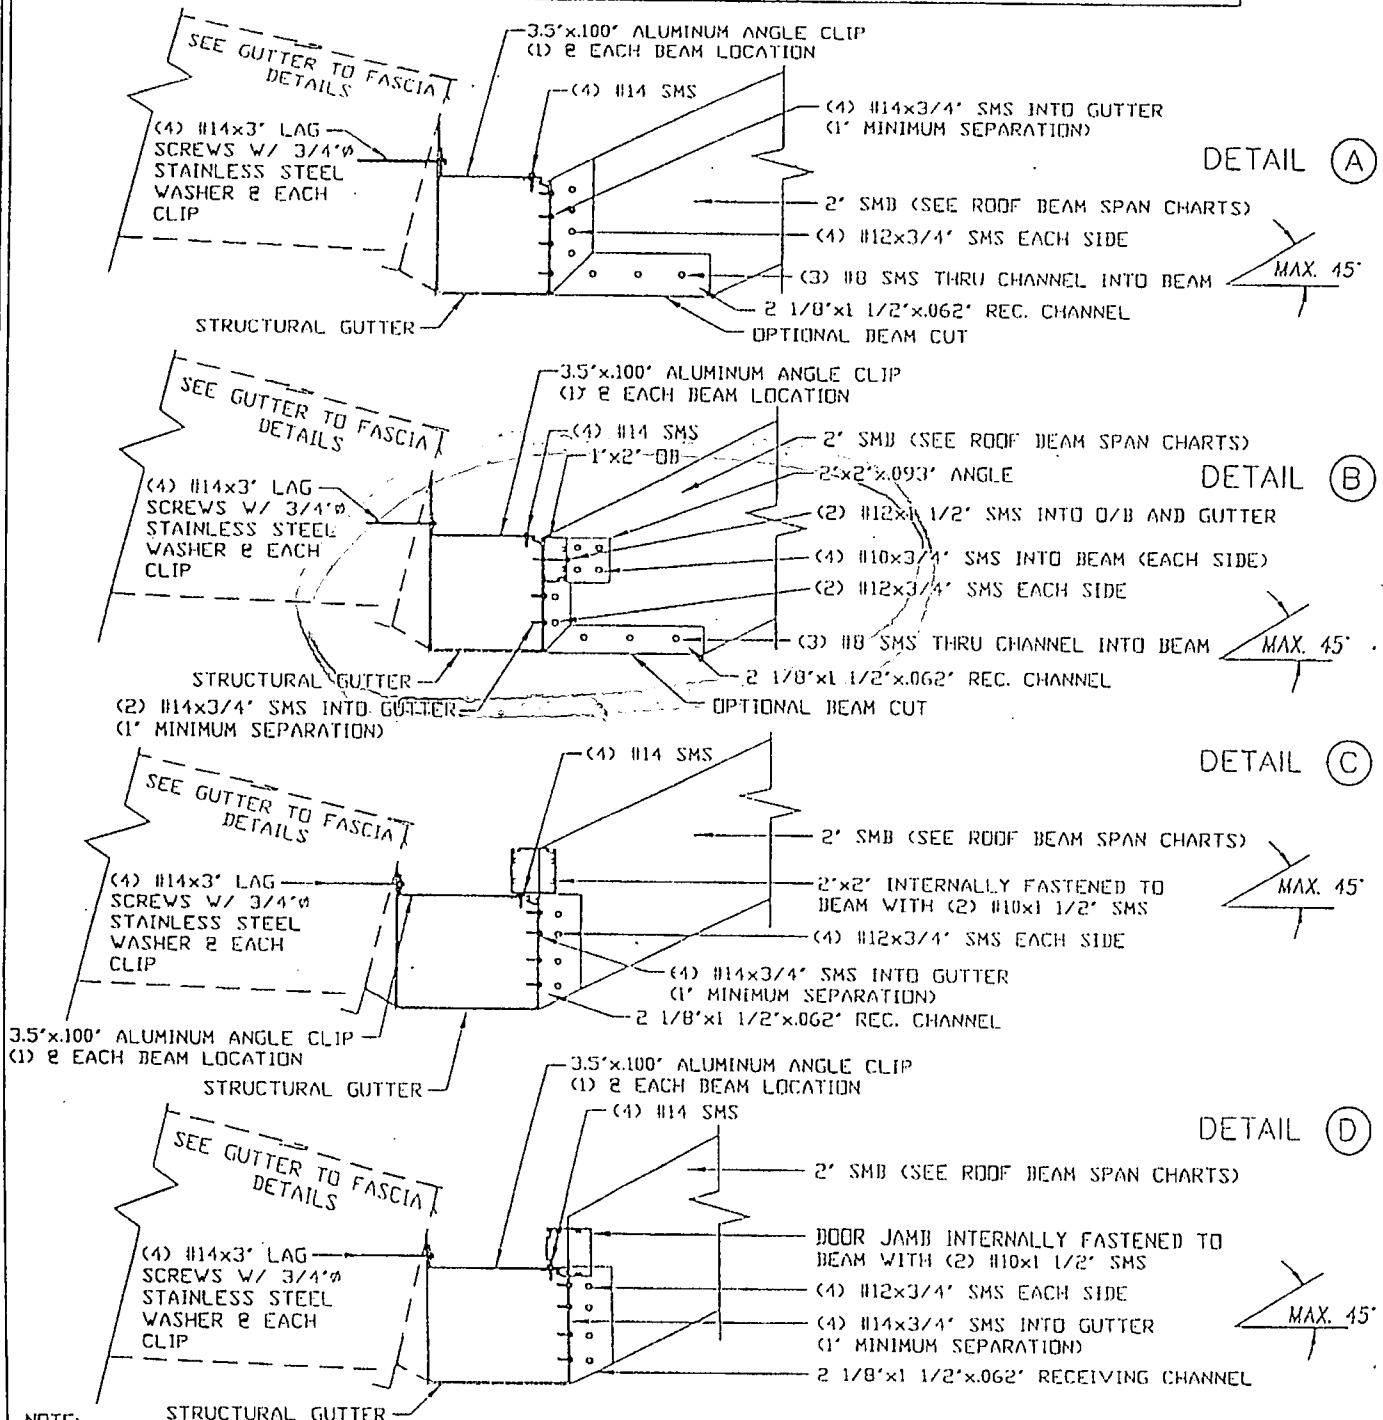 SEE GUTTER TO FASCIA
DETAILS
3.5"x.100" ALUMINUM ANGLE CLIP
(1) @ EACH BEAM LOCATION
(4) #14 SMS
(4) #14x3" LAG
SCREWS W/ 3/4"ø
STAINLESS STEEL
WASHER @ EACH
CLIP
(4) #14x3/4" SMS INTO GUTTER
(1" MINIMUM SEPARATION)
DETAIL A
2" SMB (SEE ROOF BEAM SPAN CHARTS)
(4) #12x3/4" SMS EACH SIDE
(3) #8 SMS THRU CHANNEL INTO BEAM
MAX. 45°
2 1/8"x1 1/2"x.062" REC. CHANNEL
STRUCTURAL GUTTER
OPTIONAL BEAM CUT
SEE GUTTER TO FASCIA
DETAILS
3.5"x.100" ALUMINUM ANGLE CLIP
(1) @ EACH BEAM LOCATION
(4) #14 SMS
1"x2" OB
2" SMB (SEE ROOF BEAM SPAN CHARTS)
2"x2"x.093" ANGLE
DETAIL B
(4) #14x3" LAG
SCREWS W/ 3/4"ø
STAINLESS STEEL
WASHER @ EACH
CLIP
(2) #12x1 1/2" SMS INTO O/B AND GUTTER
(4) #10x3/4" SMS INTO BEAM (EACH SIDE)
(2) #12x3/4" SMS EACH SIDE
(3) #8 SMS THRU CHANNEL INTO BEAM
MAX. 45°
2 1/8"x1 1/2"x.062" REC. CHANNEL
STRUCTURAL GUTTER
OPTIONAL BEAM CUT
(2) #14x3/4" SMS INTO GUTTER
(1" MINIMUM SEPARATION)
(4) #14 SMS
DETAIL C
SEE GUTTER TO FASCIA
DETAILS
2" SMB (SEE ROOF BEAM SPAN CHARTS)
(4) #14x3" LAG
SCREWS W/ 3/4"ø
STAINLESS STEEL
WASHER @ EACH
CLIP
2"x2" INTERNALLY FASTENED TO
BEAM WITH (2) #10x1 1/2" SMS
MAX. 45°
(4) #12x3/4" SMS EACH SIDE
(4) #14x3/4" SMS INTO GUTTER
(1" MINIMUM SEPARATION)
2 1/8"x1 1/2"x.062" REC. CHANNEL
3.5"x.100" ALUMINUM ANGLE CLIP
(1) @ EACH BEAM LOCATION
STRUCTURAL GUTTER
3.5"x.100" ALUMINUM ANGLE CLIP
(1) @ EACH BEAM LOCATION
(4) #14 SMS
DETAIL D
SEE GUTTER TO FASCIA
DETAILS
2" SMB (SEE ROOF BEAM SPAN CHARTS)
(4) #14x3" LAG
SCREWS W/ 3/4"ø
STAINLESS STEEL
WASHER @ EACH
CLIP
DOOR JAMB INTERNALLY FASTENED TO
BEAM WITH (2) #10x1 1/2" SMS
(4) #12x3/4" SMS EACH SIDE
MAX. 45°
(4) #14x3/4" SMS INTO GUTTER
(1" MINIMUM SEPARATION)
2 1/8"x1 1/2"x.062" RECEIVING CHANNEL
STRUCTURAL GUTTER
NOTE: